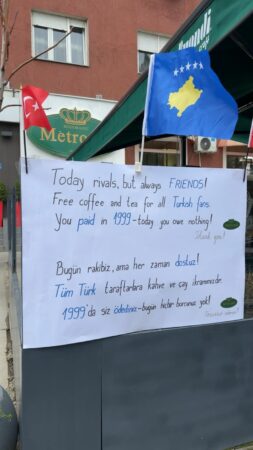 Metro
Today rivals, but always FRIENDS!
Free coffee and tea for all Turkish fans.
You paid in 1999-today you owe nothing!
Thank you!
Bugün rakibiz, ama her zaman dostuz!
Tüm Türk taraftarlara kahve ve çay ikramımızdır.
1999'da siz ödediniz-bugün hiçbir borcunuz yok!
Teşekkür ederiz!